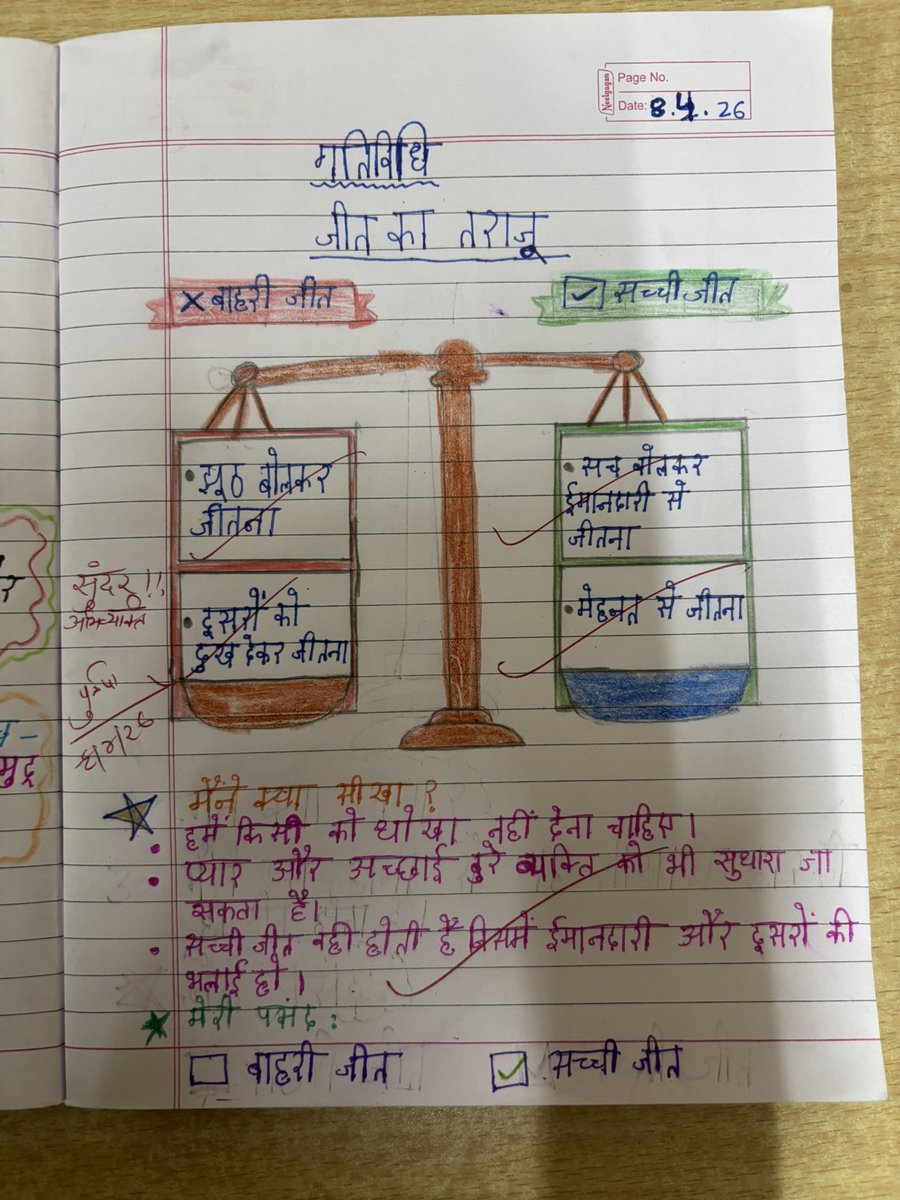 Neelgagan
Page No.
Date: 8.4.26
गतिविधि
जीत का तराजू
× बाहरी जीत
✓ सच्ची जीत
• झूठ बोलकर
जीतना
• दूसरों को
दुख देकर जीतना
• सच बोलकर
ईमानदारी से
जीतना
• मेहनत से जीतना
सुंदर!!
अभिव्यक्ति
मैंने क्या सीखा?
• हमें किसी को धोखा नहीं देना चाहिए।
• प्यार और अच्छाई बुरे व्यक्ति को भी सुधारा जा
सकता है।
• सच्ची जीत वही होती है जिसमें ईमानदारी और दूसरों की
भलाई हो।
मेरी पसंद:
बाहरी जीत
✓ सच्ची जीत